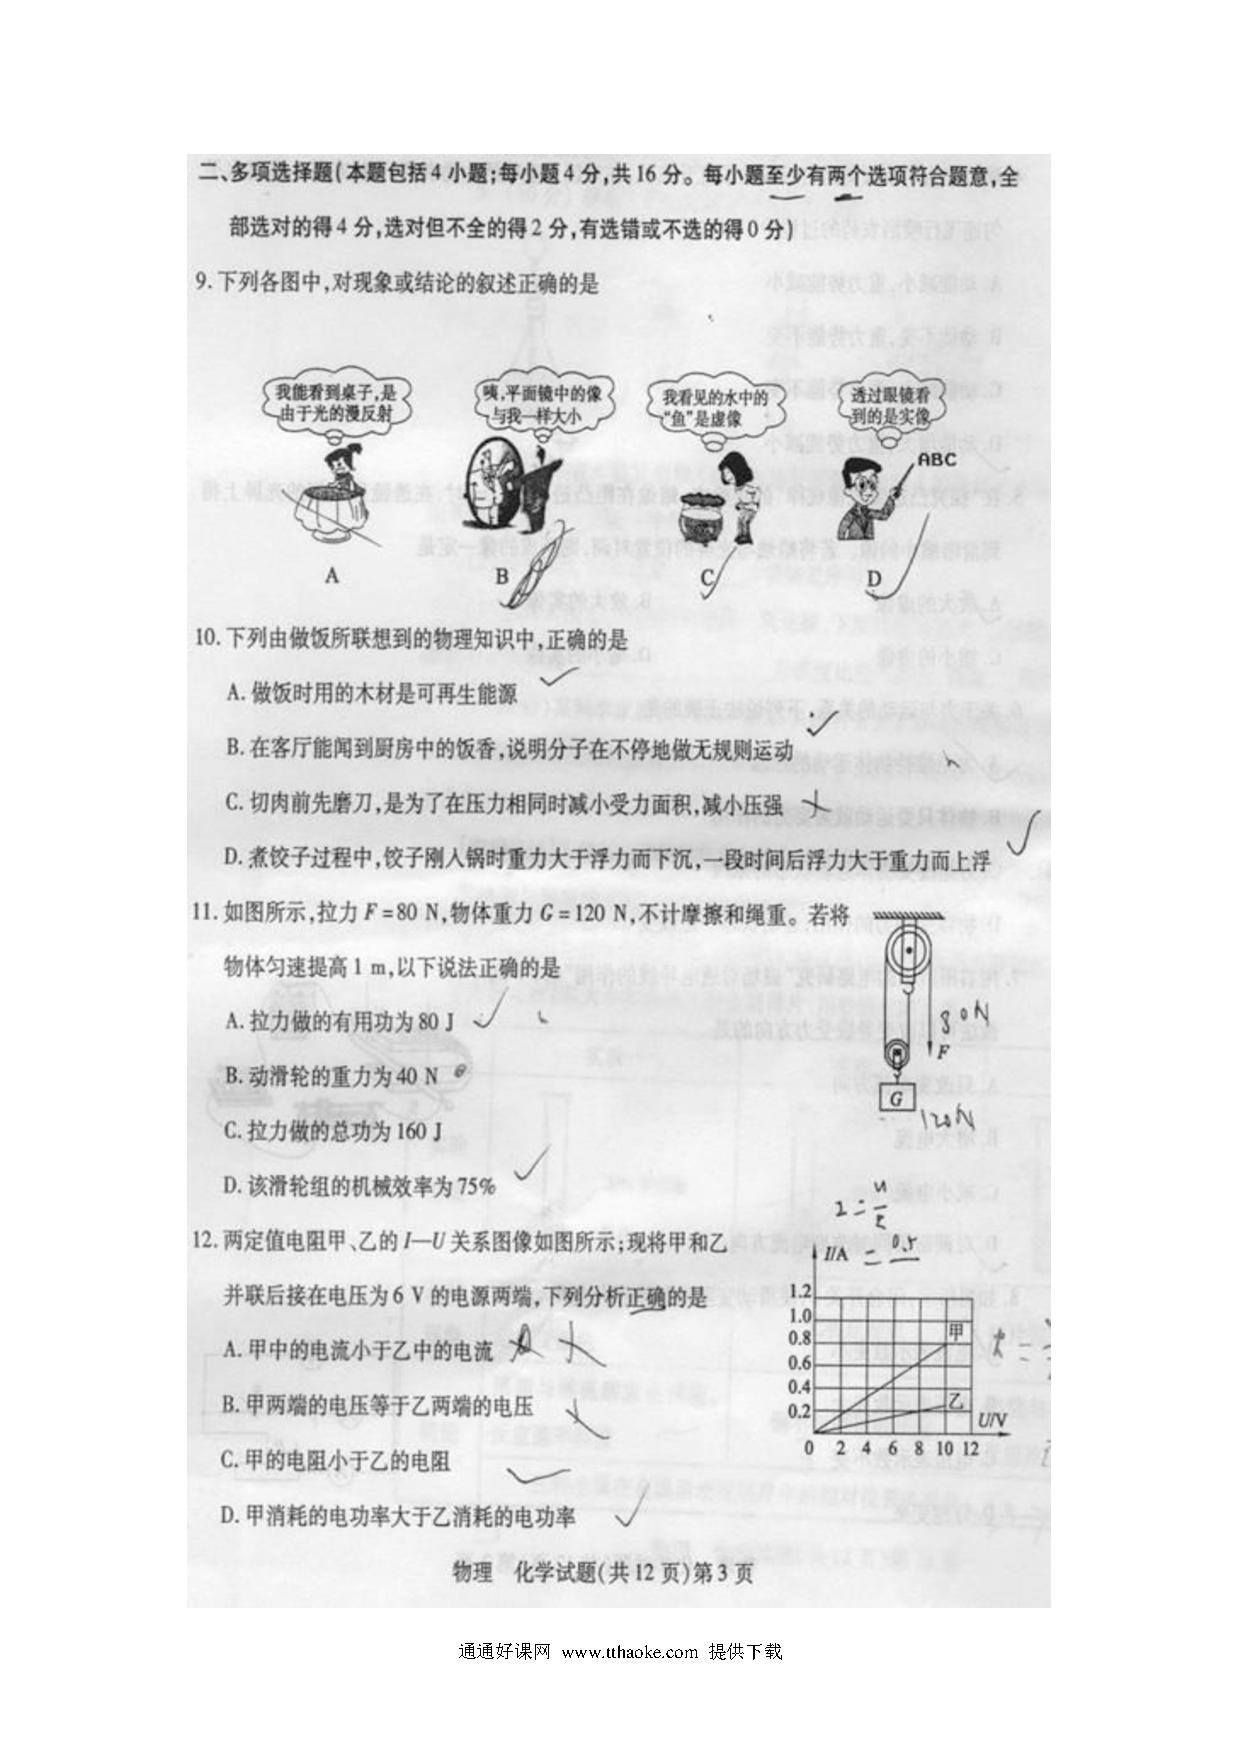 二、多项选择题(本题包括4小题;每小题4分,共16分。每小题至少有两个选项符合题意,全
部选对的得4分,选对但不全的得2分,有选错或不选的得0分)
9.下列各图中,对现象或结论的叙述正确的是
我能看到桌子,是
由于光的漫反射
咦,平面镜中的像
与我一样大小
我看见的水中的
“鱼”是虚像
透过眼镜看
到的是实像
ABC
A
B
C
D
10.下列由做饭所联想到的物理知识中,正确的是
A.做饭时用的木材是可再生能源
B.在客厅能闻到厨房中的饭香,说明分子在不停地做无规则运动
C.切肉前先磨刀,是为了在压力相同时减小受力面积,减小压强
D.煮饺子过程中,饺子刚入锅时重力大于浮力而下沉,一段时间后浮力大于重力而上浮
11.如图所示,拉力F=80 N,物体重力G=120 N,不计摩擦和绳重。若将
物体匀速提高1 m,以下说法正确的是
A.拉力做的有用功为80 J
B.动滑轮的重力为40 N
C.拉力做的总功为160 J
D.该滑轮组的机械效率为75%
80N
F
G
120N
12.两定值电阻甲、乙的I—U关系图像如图所示;现将甲和乙
并联后接在电压为6 V的电源两端,下列分析正确的是
A.甲中的电流小于乙中的电流
B.甲两端的电压等于乙两端的电压
C.甲的电阻小于乙的电阻
D.甲消耗的电功率大于乙消耗的电功率
I/A
1.2
1.0
0.8
0.6
0.4
0.2
甲
乙
U/V
0 2 4 6 8 10 12
物理 化学试题(共12页)第3页
通通好课网 www.tthaoke.com 提供下载